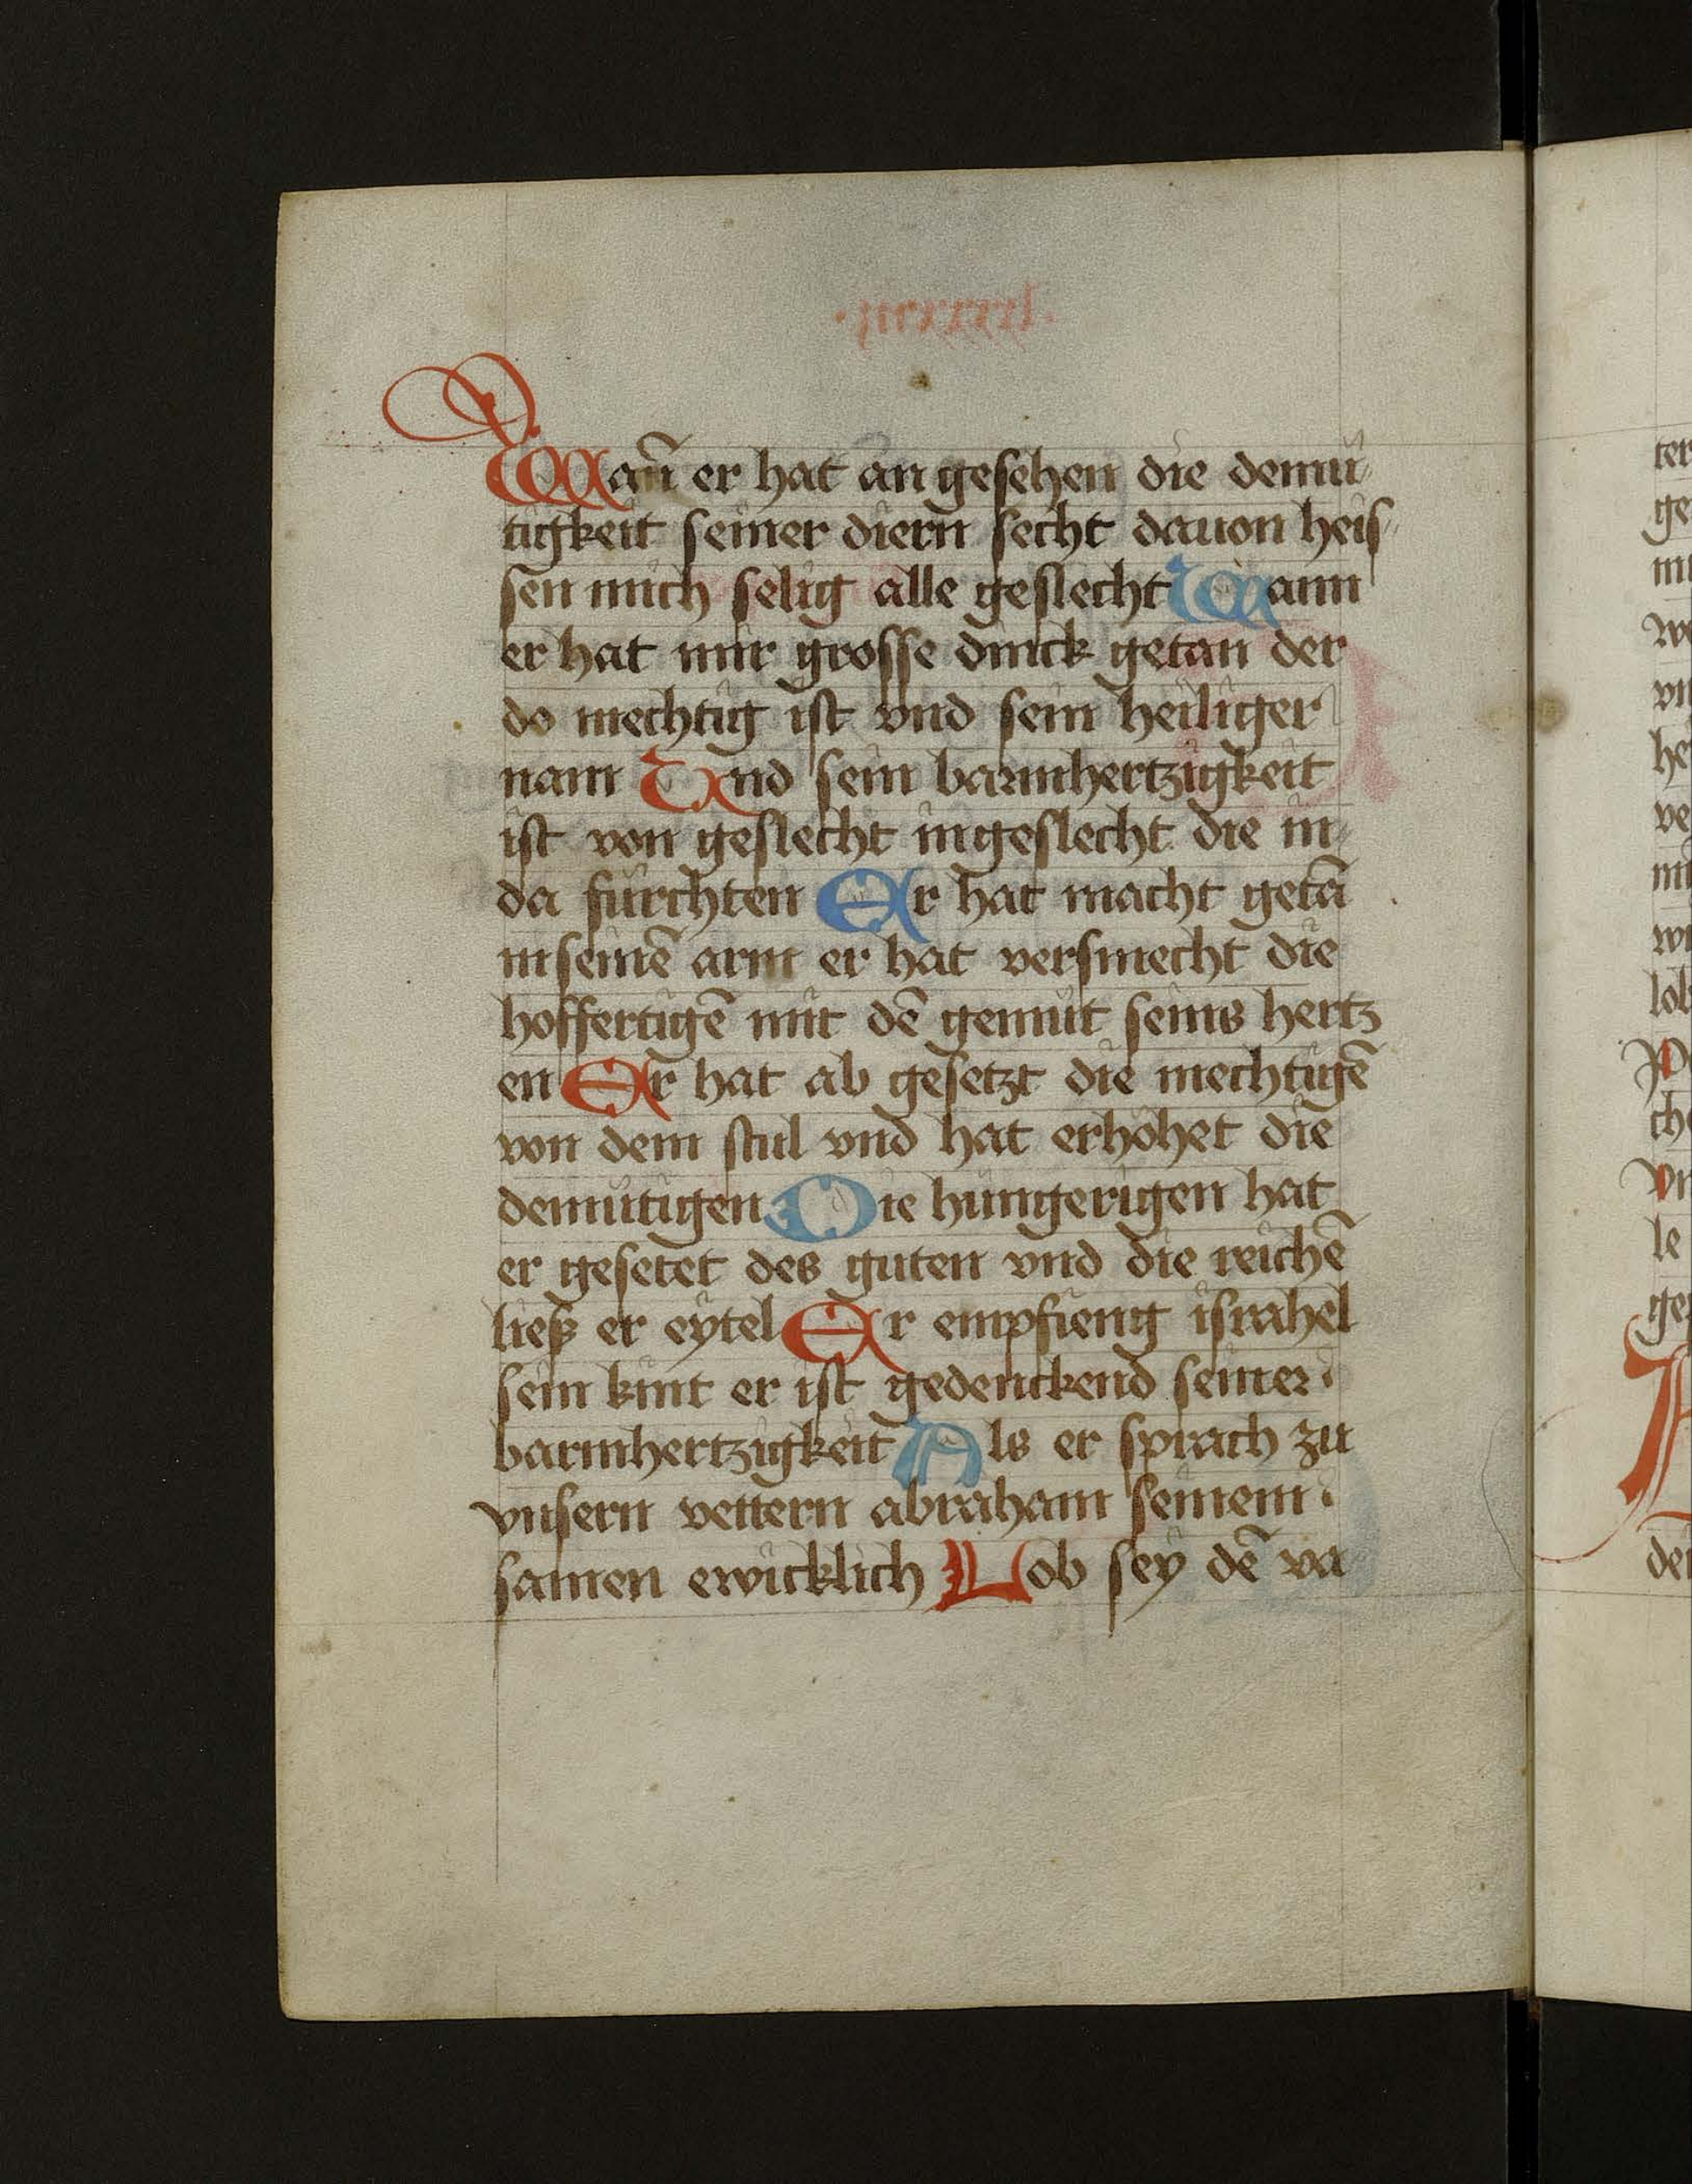 Wañ er hat an gesehen die demü
tigkeit seiner diern secht dauon heis
sen mich selig alle geslecht Wann
er hat mir grosse dinck getan der
do mechtig ist vnd sein heiliger
nam Vnd sein barmhertzigkeit
ist von geslecht ingeslecht die in
da fürchten Er hat macht getā
inseinē arm er hat versmecht die
hoffertigē mit dē gemüt seins hertz
en Er hat ab gesetzt die mechtigē
von dem stul vnd hat erhöhet die
demütigen Die hungerigen hat
er gesetet des guten vnd die reichē
ließ er eytel Er empfieng israhel
sein kint er ist gedenckend seiner
barmhertzigkeit Als er sprach zu
vnsern vettern abraham seinem
samen ewicklich Lob sey dē va